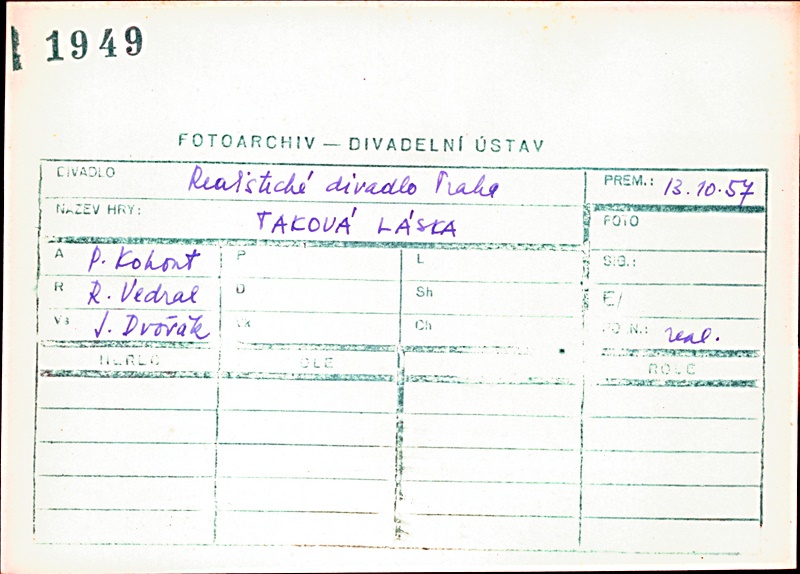 1949
FOTOARCHIV — DIVADELNÍ ÚSTAV
DIVADLO Realistické divadlo Praha PREM.: 13.10.57
NÁZEV HRY: TAKOVÁ LÁSKA FOTO
A P. Kohout P L SIG.:
R R. Vedral D Sh E/
Vs J. Dvořák Vk Ch PO N.: real.
HEREC OLE ROLE